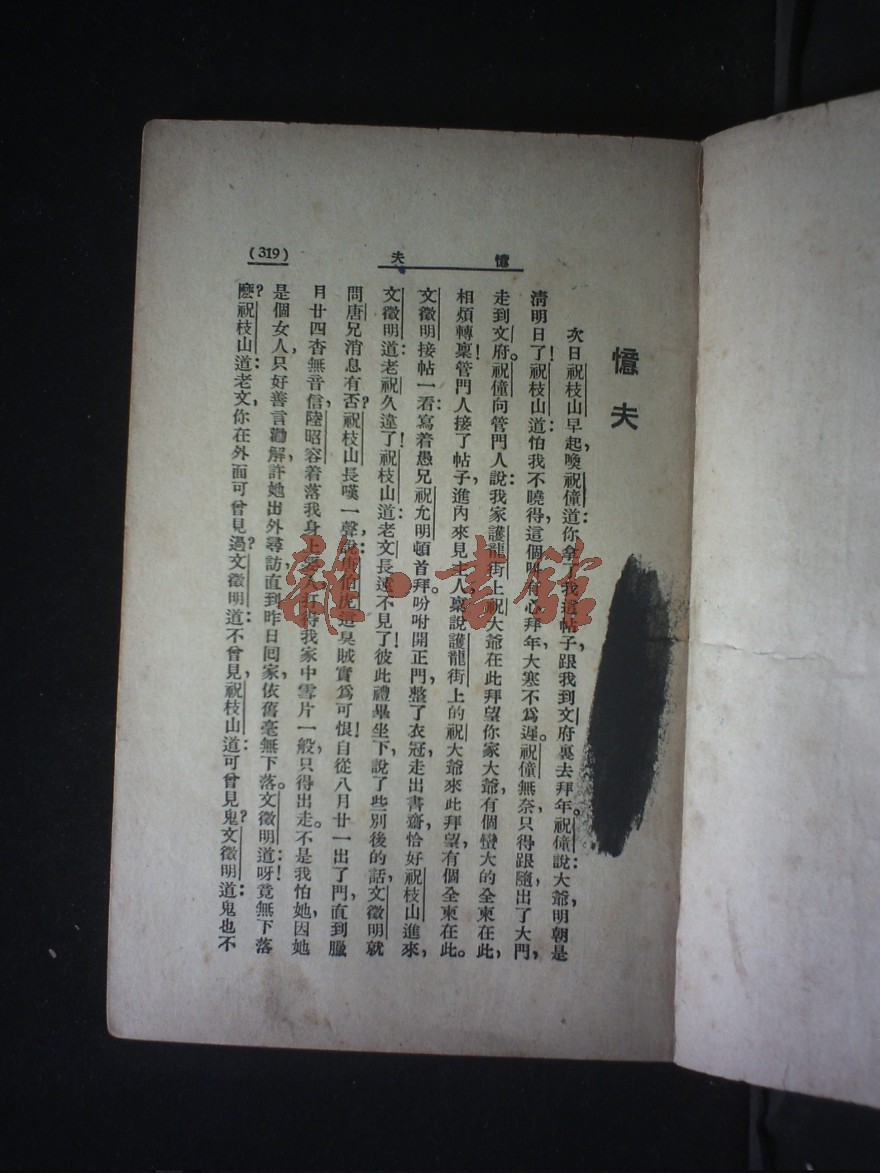 憶夫
(319)
憶夫
次日祝枝山早起,喚祝僮道:你拿了我這帖子,跟我到文府裏去拜年。祝僮說:大爺明朝是
清明日了!祝枝山道:怕我不曉得,這個叫有心拜年,大寒不爲遲。祝僮無奈,只得跟隨出了大門,
走到文府。祝僮向管門人說:我家護龍街上祝大爺在此拜望你家大爺,有個蠻大的全柬在此,
相煩轉稟!管門人接了帖子,進內來見主人,稟說:護龍街上的祝大爺來此拜望,有個全柬在此。
文徵明接帖一看:寫着愚兄祝允明頓首拜。吩咐開正門,整了衣冠,走出書齋,恰好祝枝山進來,
文徵明道:老祝久違了!祝枝山道:老文長遠不見了!彼此禮畢坐下,說了些別後的話,文徵明就
問唐兄消息有否?祝枝山長嘆一聲,說:唐伯虎這臭賊實爲可恨!自從八月廿一出了門,直到臘
月廿四杳無音信,陸昭容着落我身上要人,打得我家中雪片一般,只得出走。不是我怕她,因她
是個女人,只好善言勸解,許她出外尋訪,直到昨日回家,依舊毫無下落。文徵明道:呀!竟無下落
麽?祝枝山道:老文,你在外面可曾見過?文徵明道:不曾見,祝枝山道:可曾見鬼?文徵明道:鬼也不
雜·書館